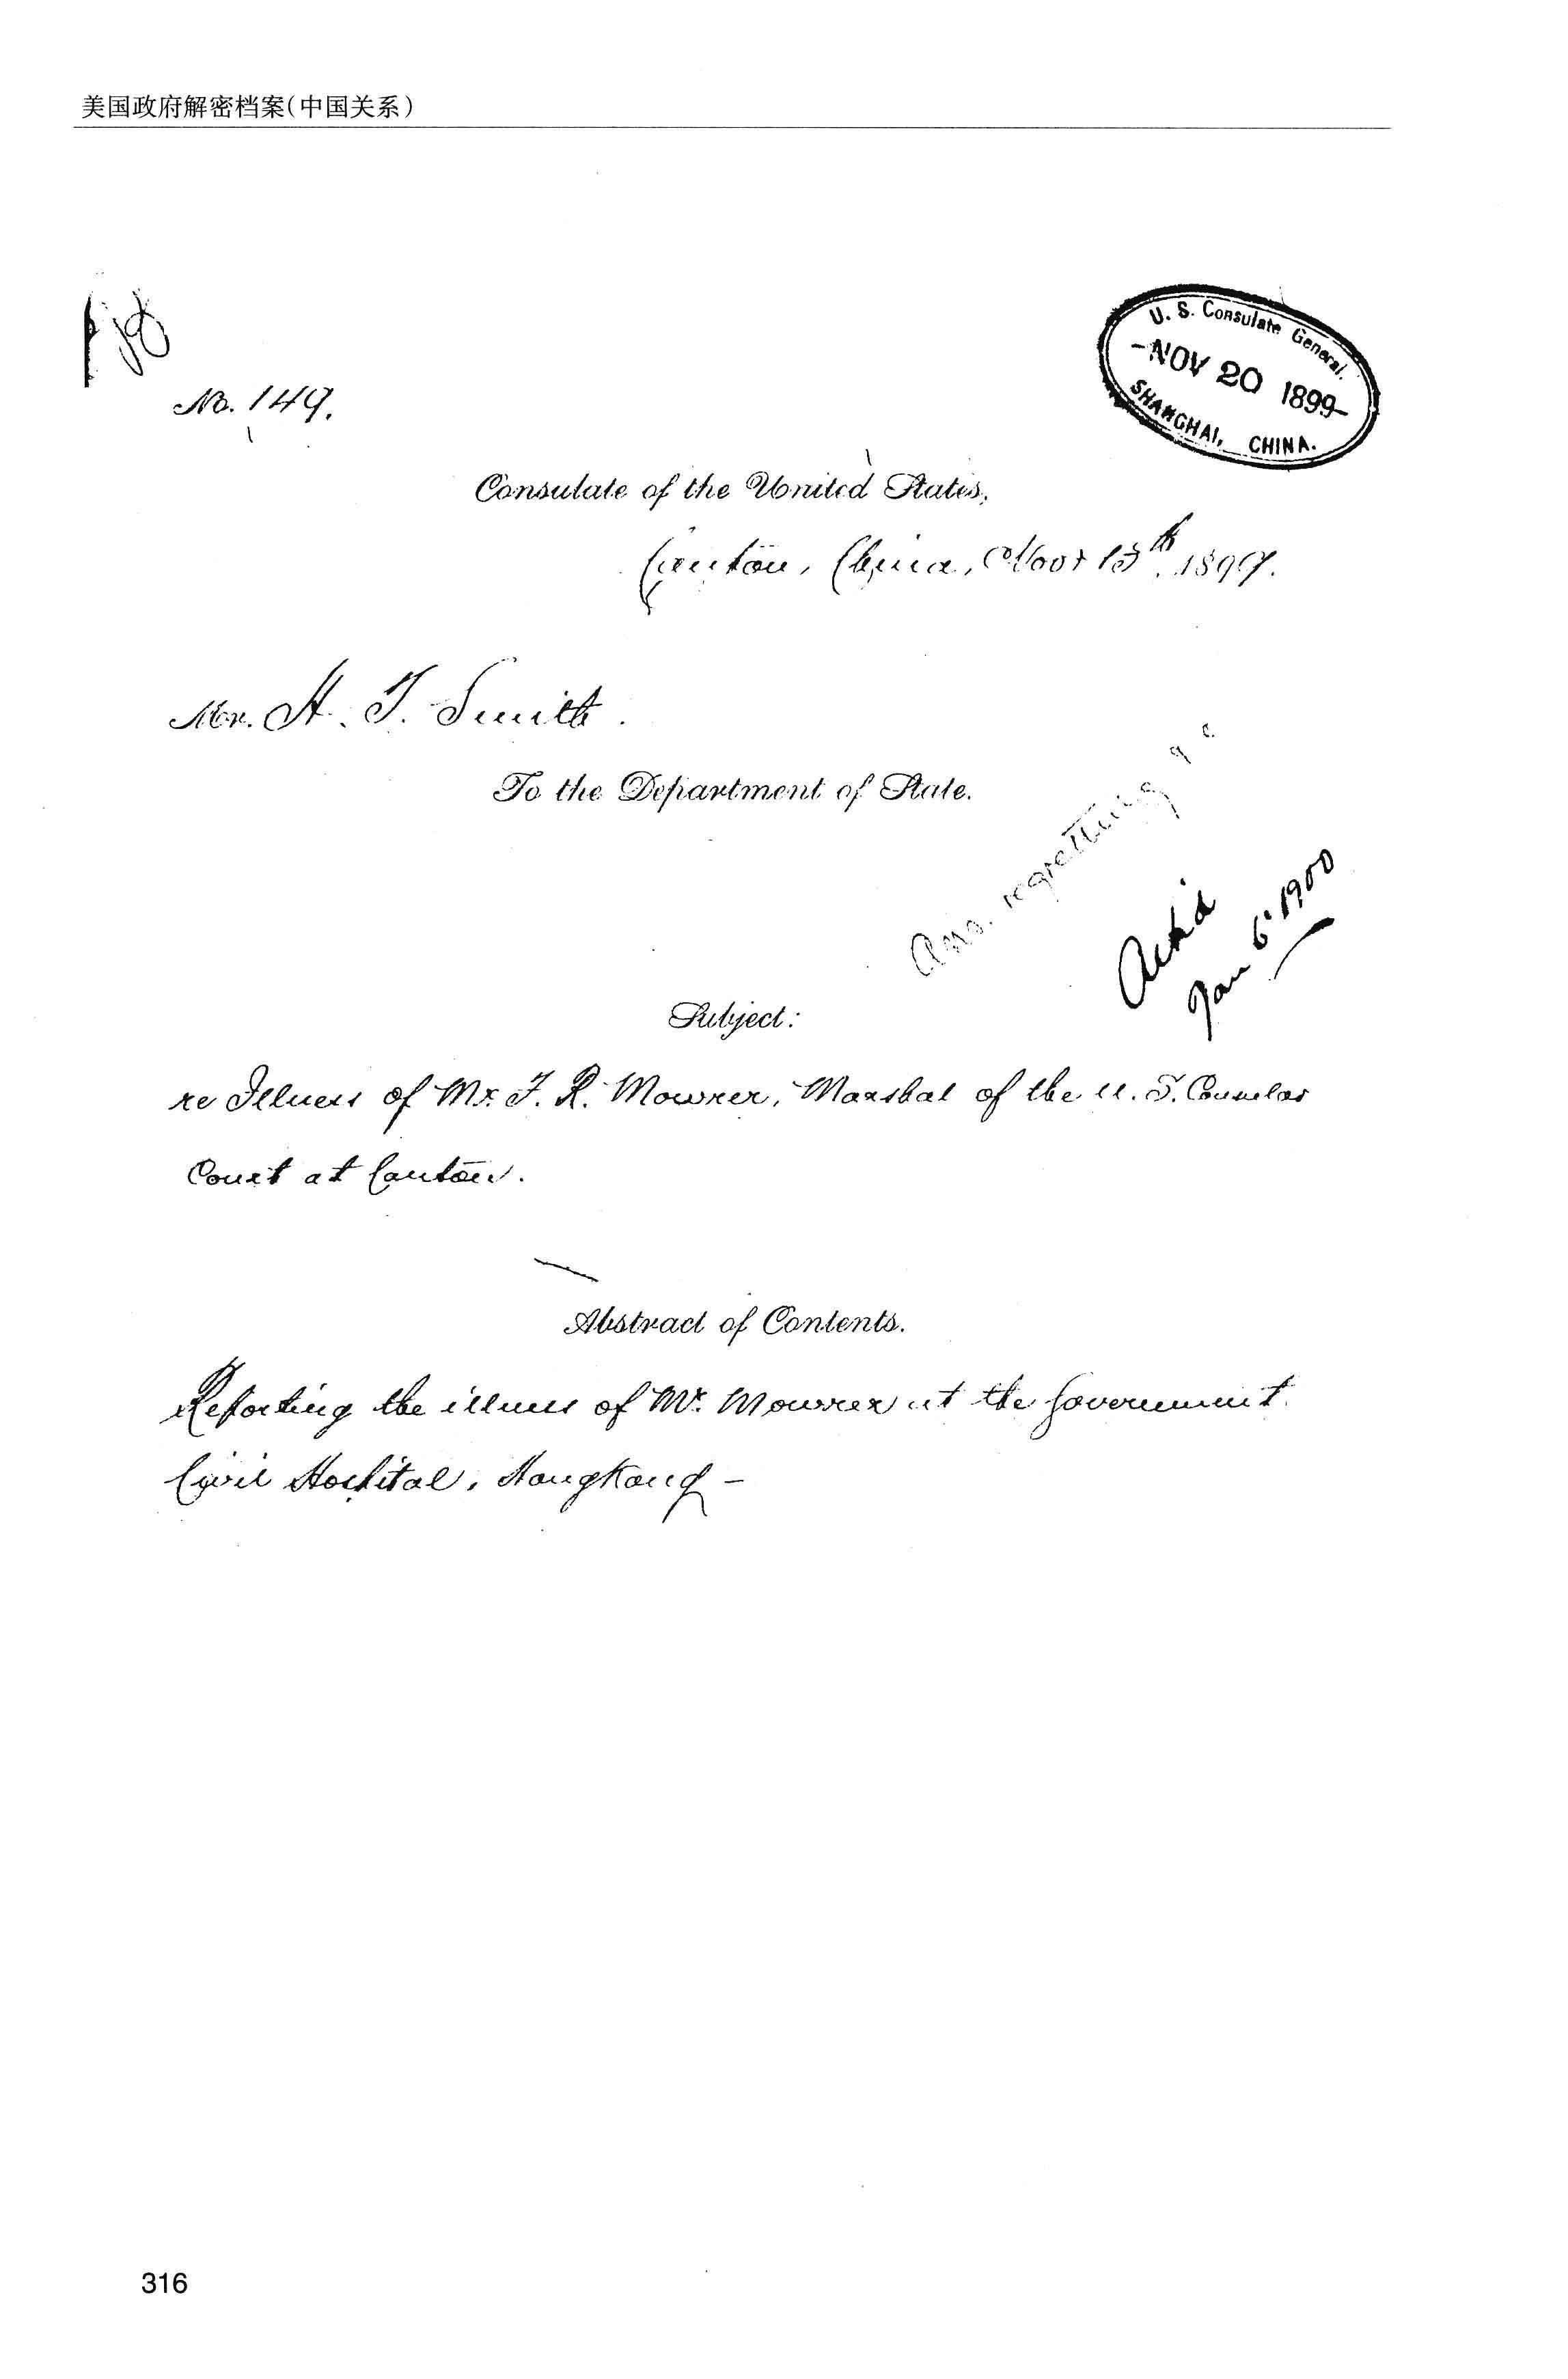 美国政府解密档案(中国关系)
No. 149.
U. S. Consulate General.
-NOV 20 1899-
SHANGHAI, CHINA.
Consulate of the United States,
Canton, China, Nov. 13th, 1899.
Mr. H. F. Smith.
To the Department of State.
Ans. regretting
Ack'd
Jan 6 1900
Subject:
re Illness of Mr. F. R. Mowrer, Marshal of the U. S. Consular
Court at Canton.
Abstract of Contents.
Reporting the illness of Mr. Mowrer at the Government
Civil Hospital, Hongkong -
316